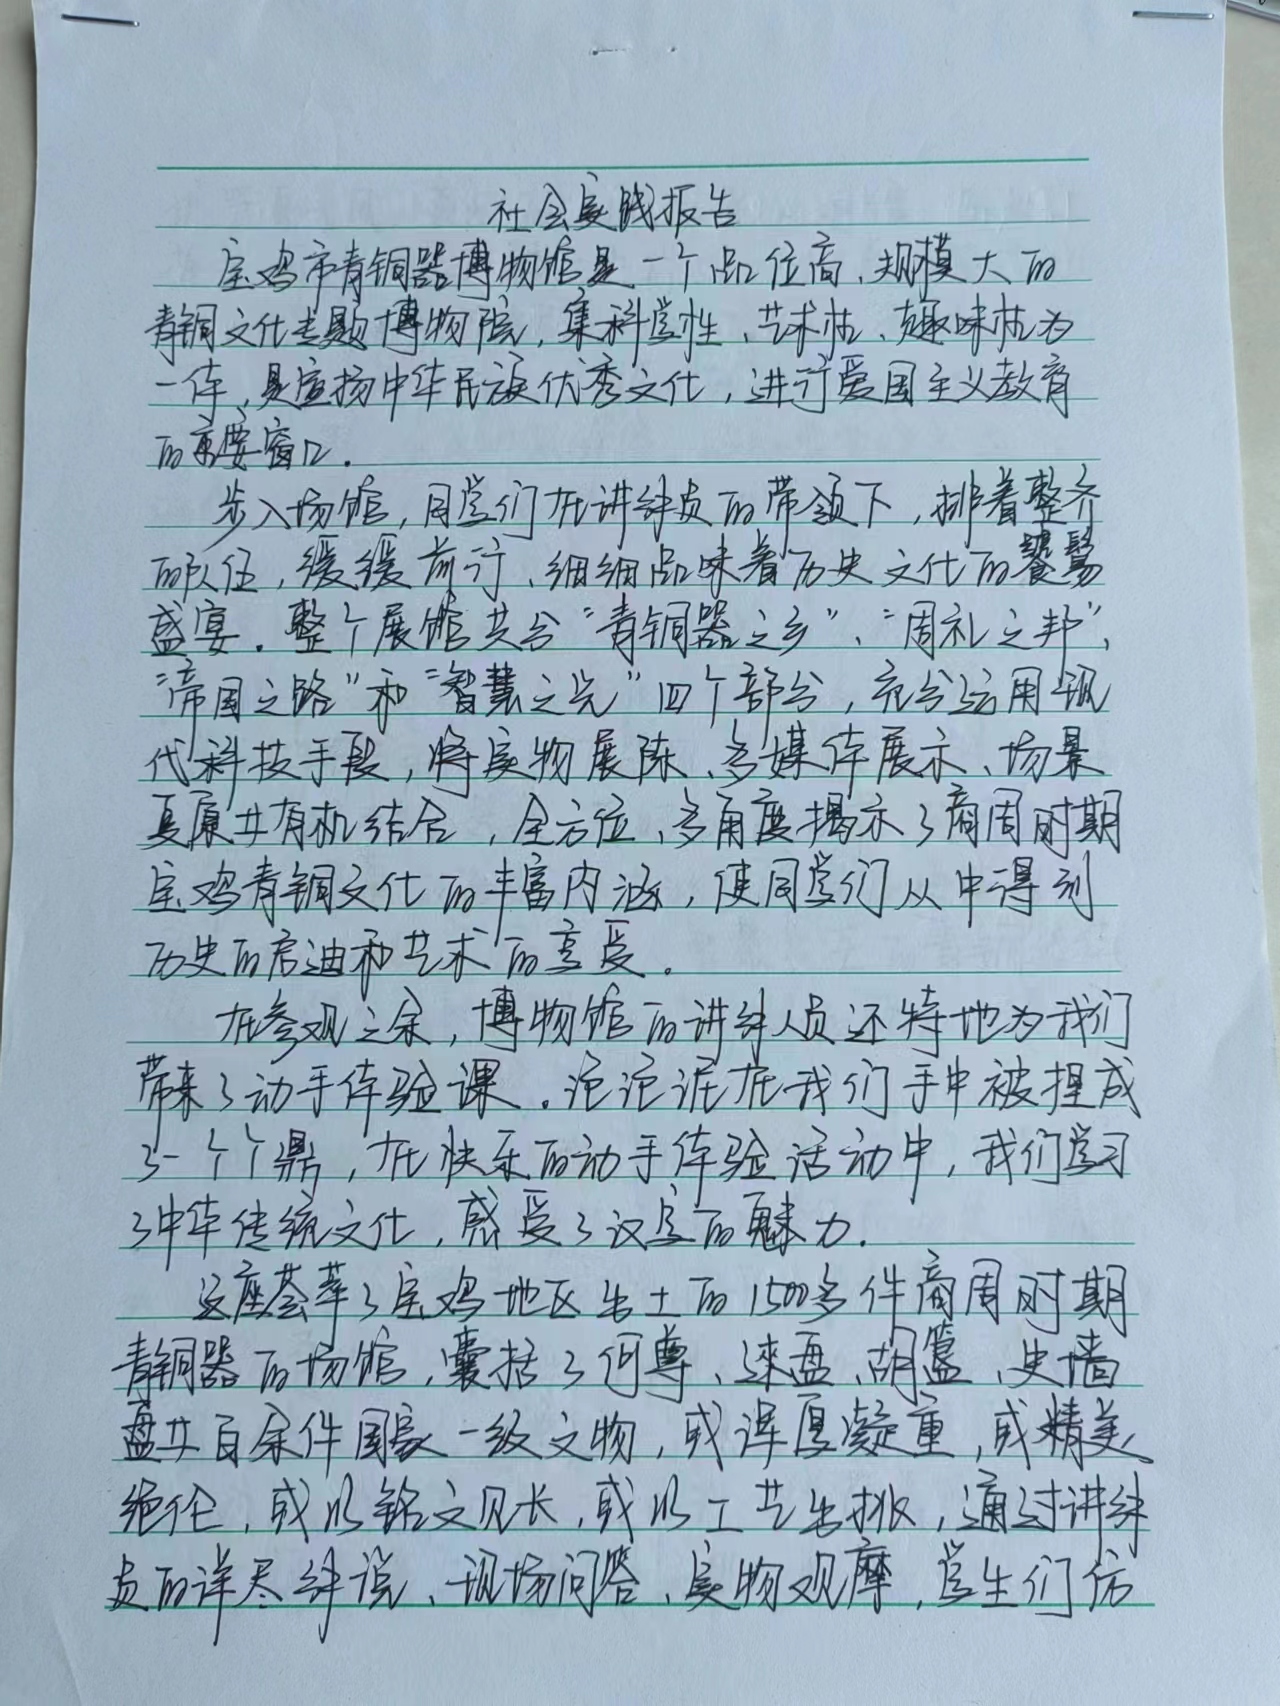 社会实践报告
宝鸡市青铜器博物馆是一个品位高、规模大的
青铜文化专题博物院，集科学性、艺术性、趣味性为
一体，是宣扬中华民族优秀文化，进行爱国主义教育
的重要窗口.
步入场馆，同学们在讲解员的带领下，排着整齐
的队伍，缓缓前行、细细品味着历史文化的饕餮
盛宴。整个展馆共分“青铜器之乡”、“周礼之邦”、
“帝国之路”和“智慧之光”四个部分，充分运用现
代科技手段，将实物展陈、多媒体展示、场景
复原等有机结合，全方位、多角度揭示了商周时期
宝鸡青铜文化的丰富内涵，使同学们从中得到
历史的启迪和艺术的享受。
在参观之余，博物馆的讲解人员还特地为我们
带来了动手体验课。泥在我们手中被捏成
了一个个鼎，在快乐的动手体验活动中，我们学习
了中华传统文化，感受了汉字的魅力.
这座荟萃了宝鸡地区出土的1500多件商周时期
青铜器的场馆，囊括了何尊、逨盘、胡簋、史墙
盘等百余件国家一级文物，或浑厚凝重，或精美
绝伦，或以铭文见长，或以工艺出挑，通过讲解
员的详尽解说、现场问答、实物观摩，学生们仿